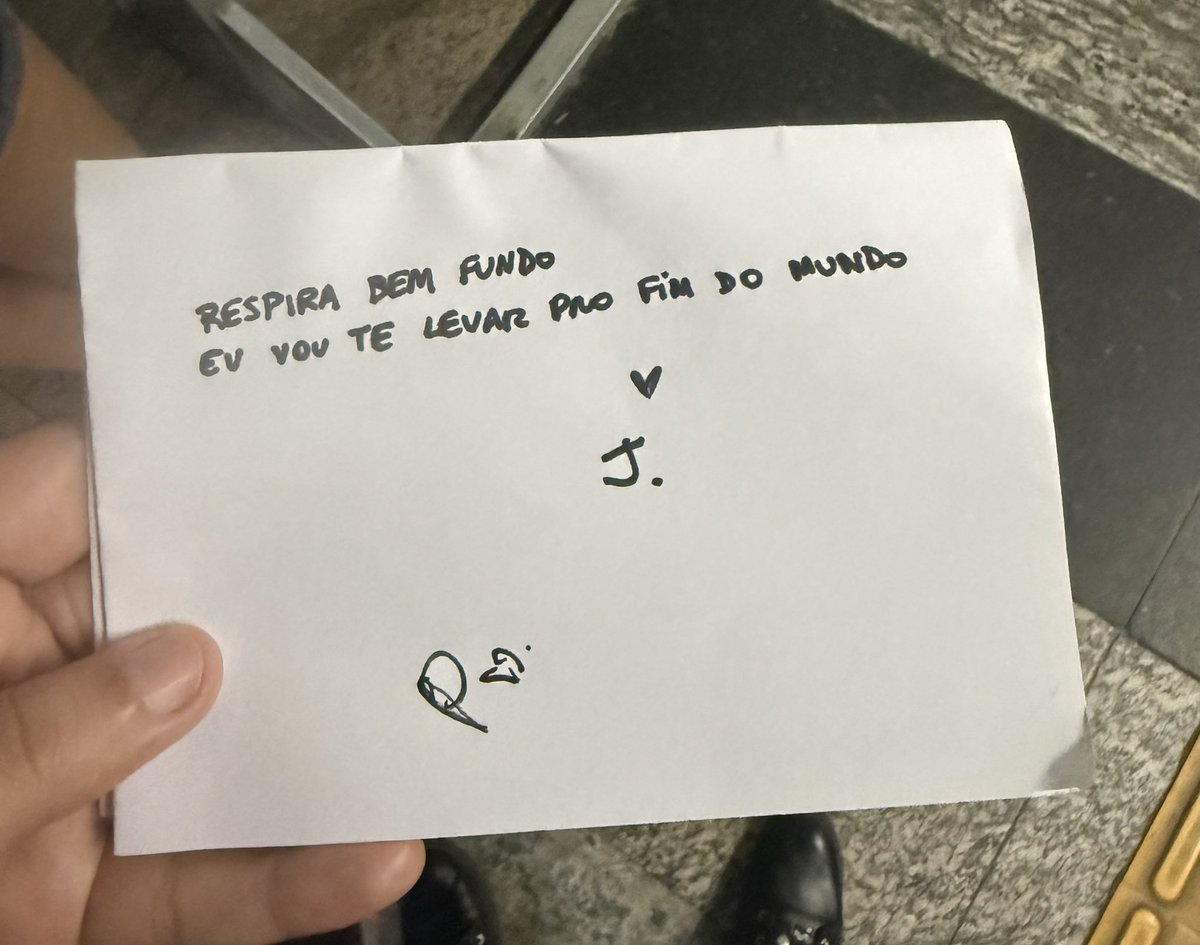 RESPIRA BEM FUNDO
EU VOU TE LEVAR PRO FIM DO MUNDO
♥
J.